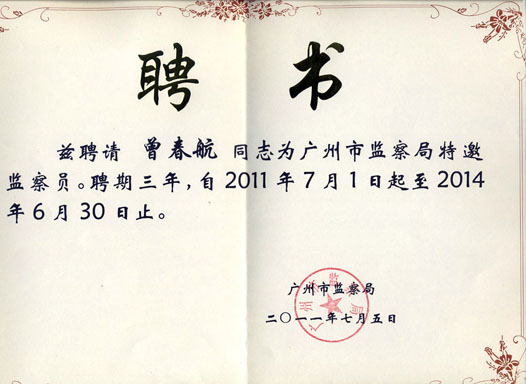 聘书
兹聘请 曾春航 同志为广州市监察局特邀
监察员。聘期三年，自2011年7月1日起至2014
年6月30日止。
广州市监察局
二〇一一年七月五日